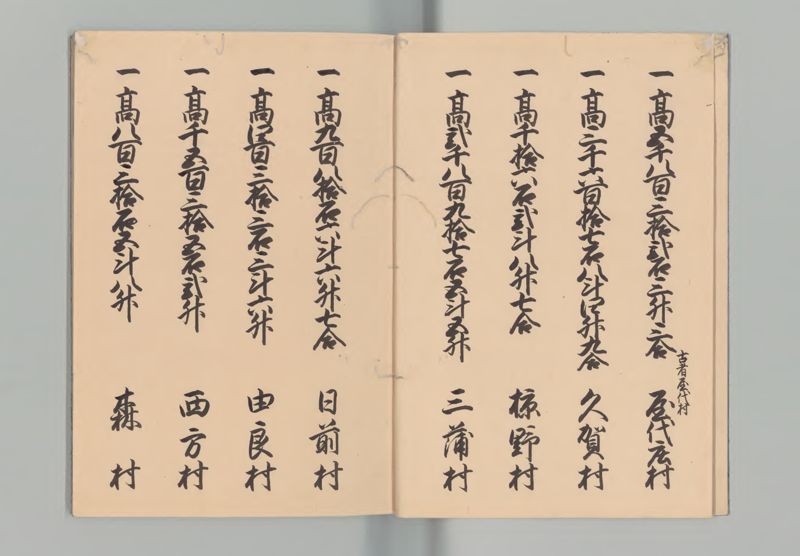 一高五千八百三拾弐石三升三合 屋代庄村
古者屋代村
一高二千六百拾七石八斗四升九合 久賀村
一高千拾六石弐斗八升七合 椋野村
一高弐千八百九拾七石五斗五升 三蒲村
一高九百八拾石六斗六升七合 日前村
一高四百三拾三石三斗六升 由良村
一高千五百三拾五石弐升 西方村
一高八百三拾石五斗八升 森村